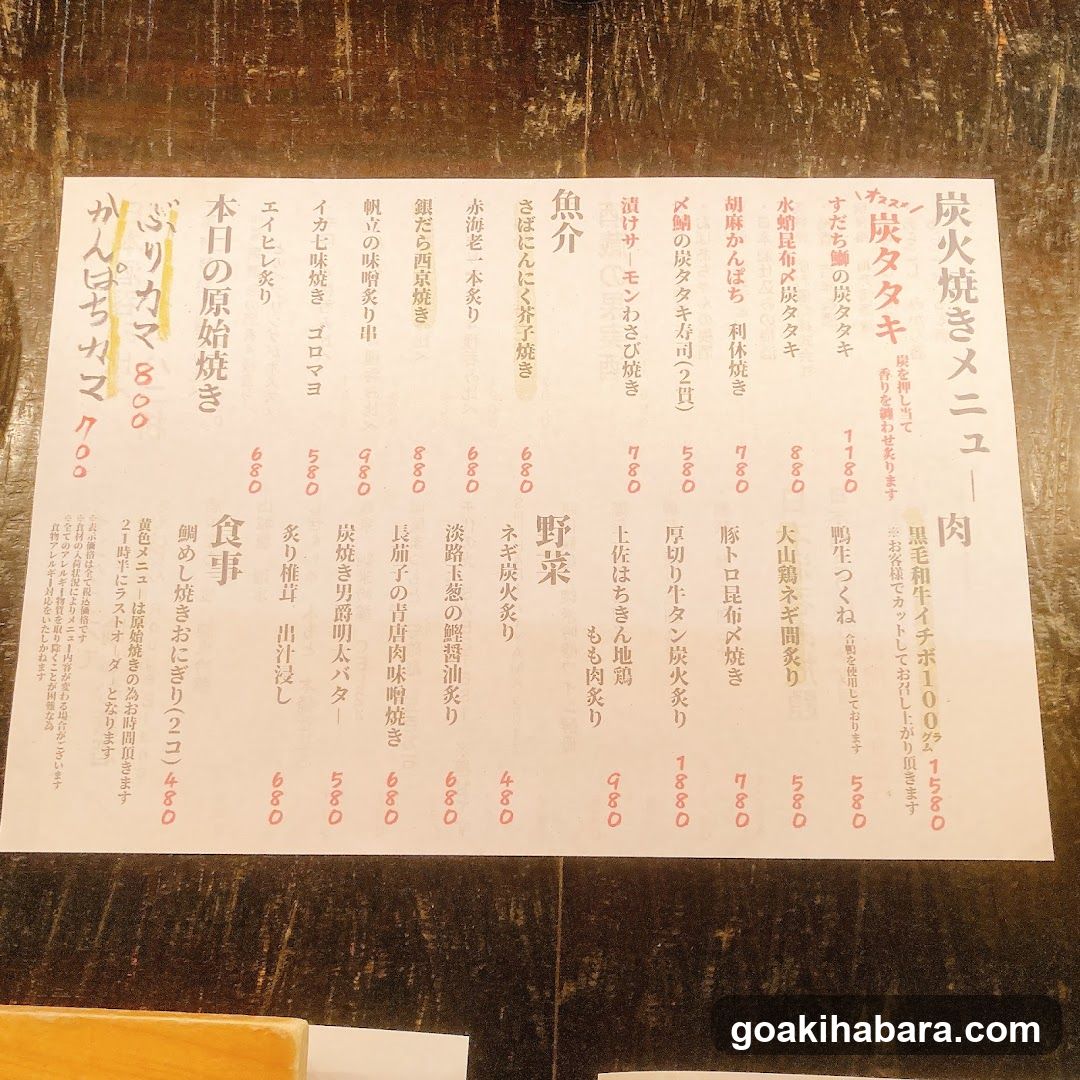 炭火焼きメニュー
オススメ
炭タタキ
炭を押し当て
香りを纏わせ炙ります
すだち鰤の炭タタキ 1180
水蛸昆布〆炭タタキ 880
胡麻かんぱち 利休焼き 780
〆鯖の炭タタキ寿司(2貫) 580
漬けサーモンわさび焼き 780
魚介
さばにんにく芥子焼き 680
赤海老一本炙り 680
銀だら西京焼き 880
帆立の味噌炙り串 980
イカ七味焼き ゴロマヨ 580
エイヒレ炙り 680
本日の原始焼き
ぶりカマ 800
かんぱちカマ 700
肉
黒毛和牛イチボ100グラム 1580
※お客様でカットしてお召し上がり頂きます
鴨生つくね 合鴨を使用しております 580
大山鶏ネギ間炙り 580
豚トロ昆布〆焼き 780
厚切り牛タン炭火炙り 1880
土佐はちきん地鶏
もも肉炙り 980
野菜
ネギ炭火炙り 480
淡路玉葱の鰹醤油炙り 680
長茄子の青唐肉味噌焼き 680
炭焼き男爵明太バター 580
炙り椎茸 出汁浸し 680
食事
鯛めし焼きおにぎり(2コ) 480
黄色メニューは原始焼きの為お時間頂きます
21時半にラストオーダーとなります
※表示価格は全て税込価格です
※食材の入荷状況によりメニュー内容が変わる場合がございます
※全てのアレルギー物質を取り除くことが困難な為
食物アレルギー対応をいたしかねます
goakihabara.com